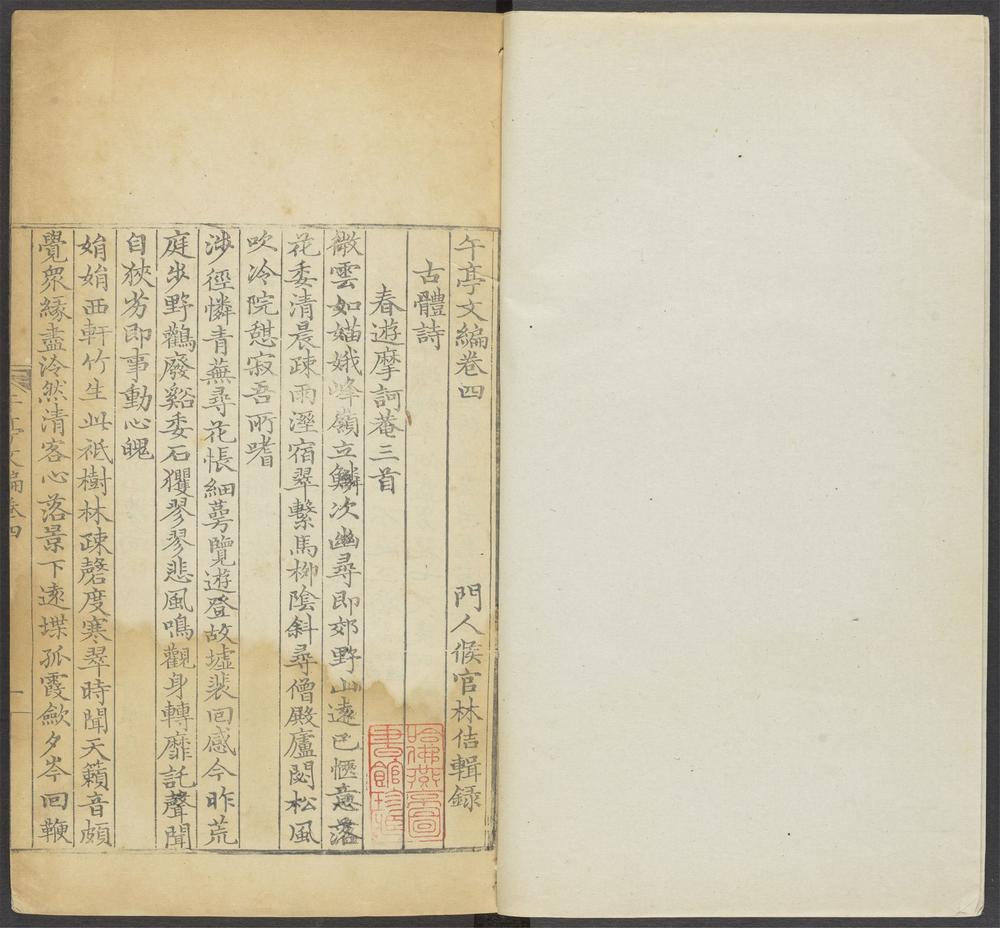 午亭文編卷四
門人候官林佶輯錄
古體詩
春遊摩訶菴三首
微雲如媌娥峰嶺立鱗次幽尋即郊野山遠已愜意落
花委清晨疎雨溼宿翠繫馬柳陰斜尋僧殿廬閟松風
吹冷院憇寂吾所嗜
涉徑憐青蕪尋花悵細蕚覽遊登故墟裴回感今昨荒
庭步野鸛廢谿委石玃翏翏悲風鳴觀身轉靡託聲聞
自狹劣即事動心魄
娟娟西軒竹生此祇樹林疎磬度寒翠時聞天籟音頗
覺衆緣盡泠然清客心落景下遠堞孤霞歛夕岑回鞭
午亭文編卷四
一
哈佛燕京圖書館珍